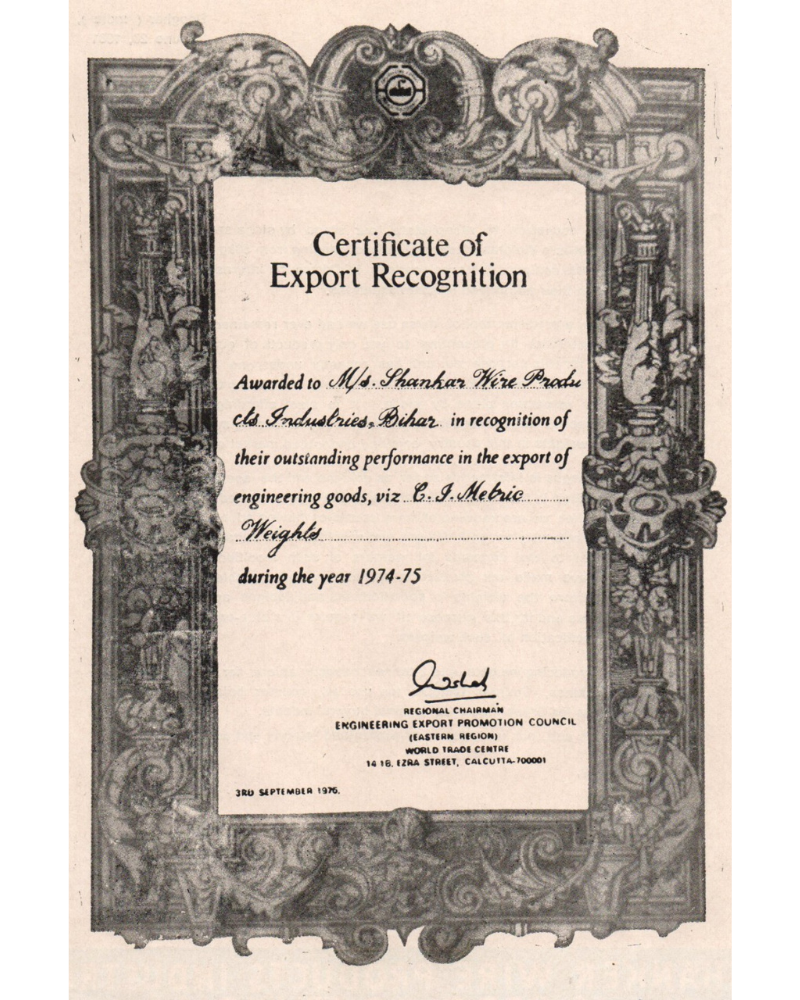 Certificate of
Export Recognition
Awarded to M/s. Shankar Wire Produ
cts Industries, Bihar in recognition of
their outstanding performance in the export of
engineering goods, viz C. I. Metric
Weights
during the year 1974-75
REGIONAL CHAIRMAN
ENGINEERING EXPORT PROMOTION COUNCIL
(EASTERN REGION)
WORLD TRADE CENTRE
14 1B, EZRA STREET, CALCUTTA-700001
3RD SEPTEMBER 1976.